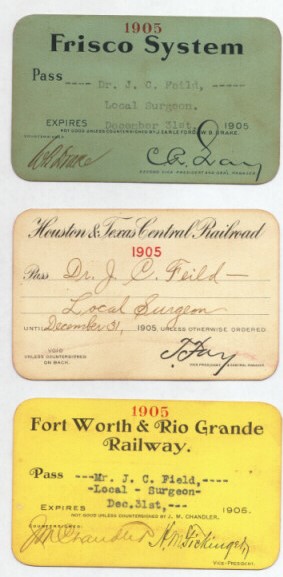 1905
Frisco System
Pass ---- Dr. J. C. Feild, ----
Local Surgeon.
December 31st, 1905
EXPIRES
NOT GOOD UNLESS COUNTERSIGNED BY J. EARLE FORD, W. B. DRAKE.
COUNTERSIGNED
W B Drake
C. R. Gray
SECOND VICE PRESIDENT AND GENL. MANAGER
Houston & Texas Central Railroad
1905
Pass Dr. J C. Feild —
Local Surgeon
UNTIL December 31, 1905 UNLESS OTHERWISE ORDERED
VOID
UNLESS COUNTERSIGNED
ON BACK.
T. Fay
VICE PRESIDENT & GENERAL MANAGER
1905
Fort Worth & Rio Grande
Railway.
Pass ---Mr. J. C. Field,----
-Local - Surgeon-
EXPIRES Dec.31st,--- 1905.
NOT GOOD UNLESS COUNTERSIGNED BY J. M. CHANDLER.
COUNTERSIGNED:
J M Chandler
VICE-PRESIDENT.